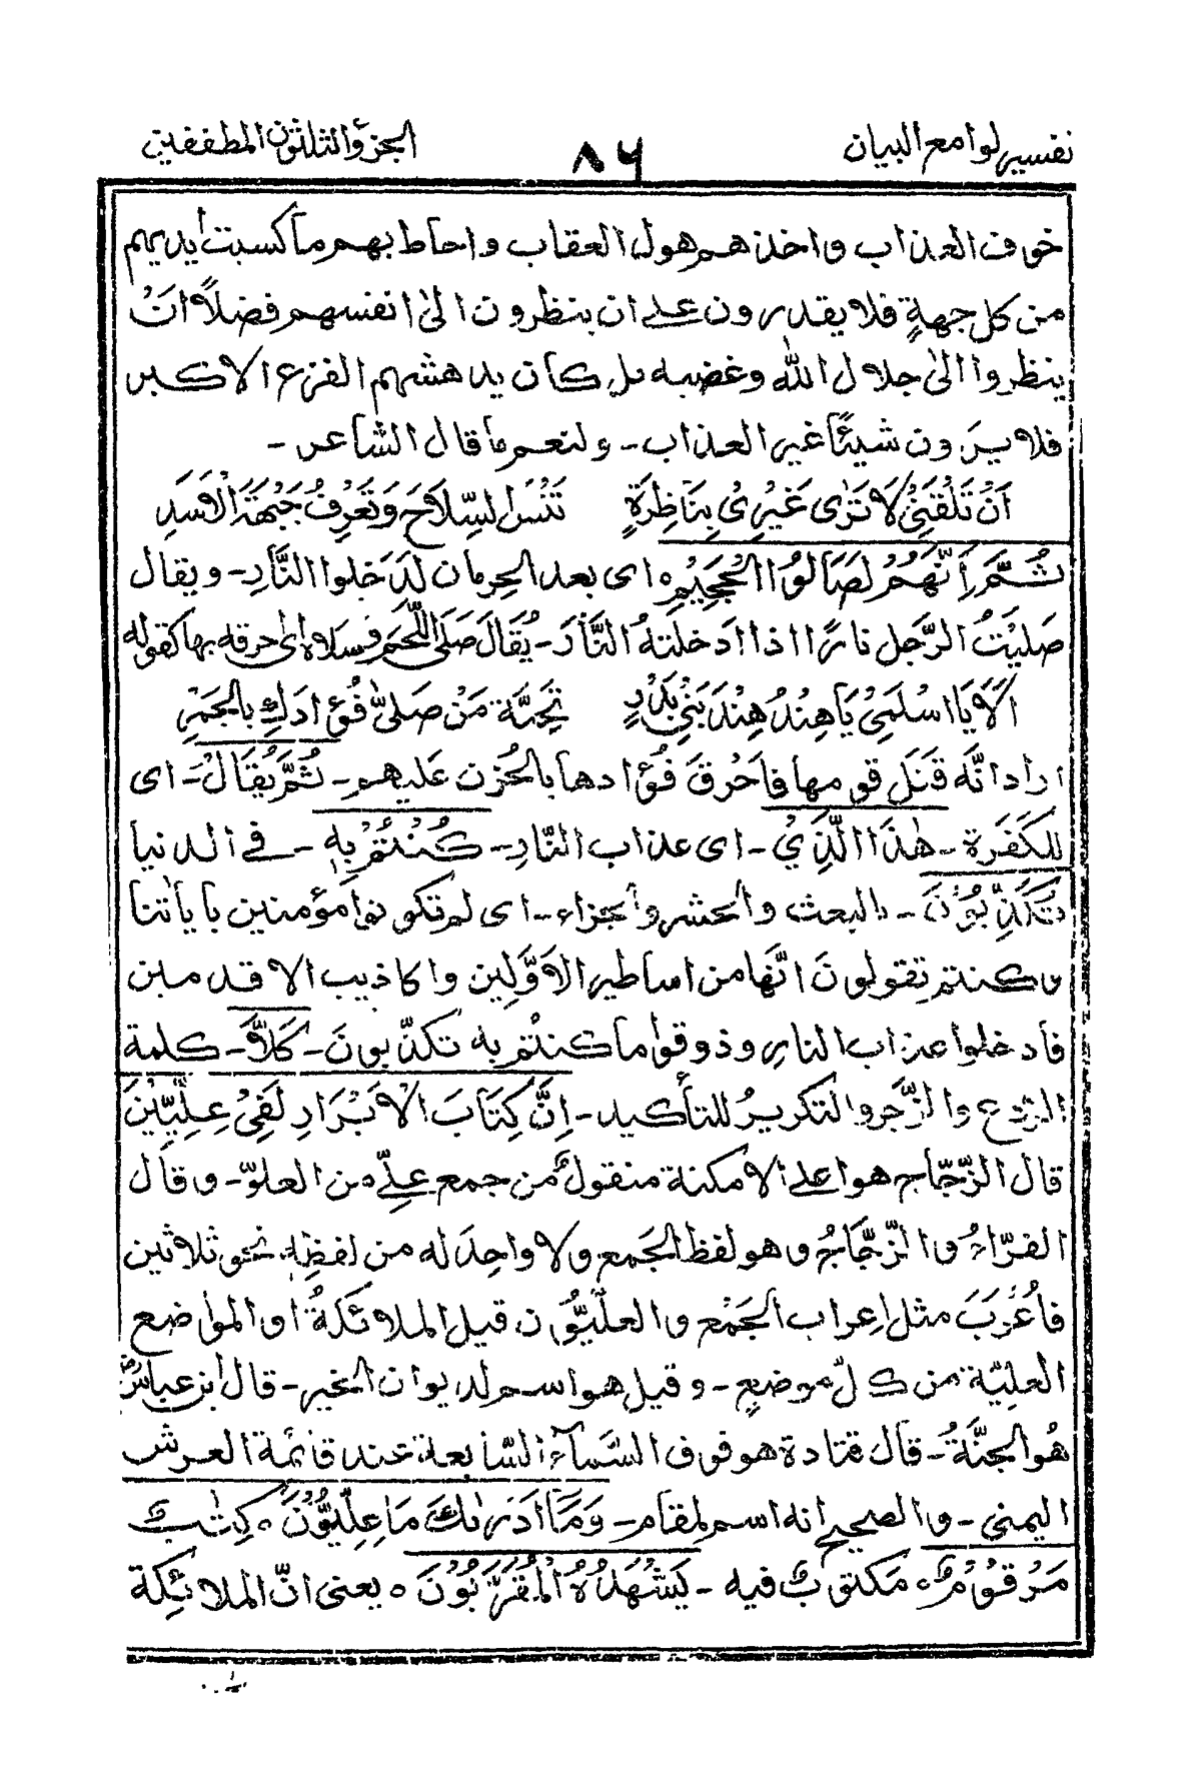 تفسير لوامع البيان
٨٦
الجزء الثلثون المطففين
خوف العذاب واخذهم هول العقاب واحاط بهم ما كسبت ايديهم
من كل جهةٍ فلا يقدرون على ان ينظرون الىٰ انفسهم فضلاً ان
ينظروا الىٰ جلال الله وغضبه بل كان يدهشهم الفزع الاكبر
فلا يرون شيئًا غير العذاب - ولنعم ما قال الشاعر -
اَنْ تَلْقَنِىْ لَا تَرٰى غَيْرِىْ بِنَاظِرَةٍ تَنْسَ السِّلَاحَ وَتَعْرِفُ جَبْهَةَ الْاَسَدِ
ثُمَّ اِنَّهُمْ لَصَالُوا الْجَحِيْمِ ه اى بعد الحِرمان لَدَخلوا النَّارِ - ويقال
صَلَيْتُ الرَّجل نارًا اذا ادخلتهُ النَّارَ - يُقَالَ صَلَى اللَّحَم فسلاه اى حرقه بها كقوله
اَلَا يَا اسْلَمِىْ يَا هِنْدُ هِنْدَ بَنِىْ بَدْرٍ تَحِيَّةَ مَنْ صَلّىٰ فُؤادَكِ بِالجَمْرِ
اراد انَّه قَتَل قومها فاَحْرقَ فُؤادها بالحُزن عَليهم - ثُمَّ يُقَالُ - اى
للكَفَرة - هٰذَا الَّذِىْ - اى عذاب النَّارِ - كُنْتُمْ بِهٖ - في الدنيا
تُكَذِّبُوْنَ - بالبعث والحشر والجزاء - اى لم تكونوا مؤمنين باٰياتنا
وكنتم تقولونَ انَّها من اساطير الاَوَّلِين واكاذيب الاقدمين
فادخلوا عذاب النارِ وذوقوا ما كنتُم به تكذّبونَ - كَلَّا - كلمة
الردع والزّجر والتكريرُ للتأكيد - اِنَّ كِتَابَ الْاَبْرَارِ لَفِىْ عِلِّيِّيْنَ
قال الزّجّاج هو اعلى الامكنة منقولٌ من جمع علِّى من العلوّ - وقال
الفرّاءُ والزّجّاجُ وهو لفظ الجَمع ولا واحِدَ له من لفظِهٖ نحو ثلاثين
فاُعْرَبَ مثل اِعراب الجَمْع والعلّيُّون قيل الملائكةُ او المواضع
العلِيّة من كلّ موضعٍ - وقيل هو اسم لديوان الخير - قال ابن عباس رض
هُو الجنَّةُ - قال قتادة هو فوق السَّمآء السّابعة عند قائمة العرش
اليمنى - والصحيح انه اسم لمِقام - وَمَآ اَدْرٰىكَ مَا عِلِّيُّوْنَ ه كِتٰبٌ
مَرْقُوْمٌ ه مكتوبٌ فيه - يَشْهَدُهُ الْمُقَرَّبُوْنَ ه يعنى انّ الملائِكة